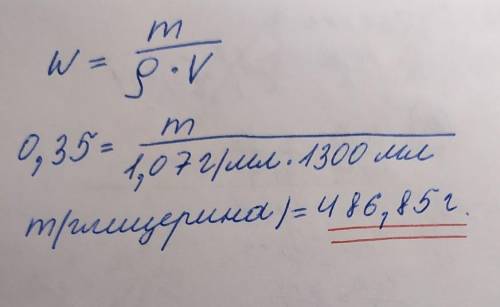 w = m / ρ · V
0,35 = m / 1,07 г/мл · 1300 мл
m(глицерина) = 486,85 г.